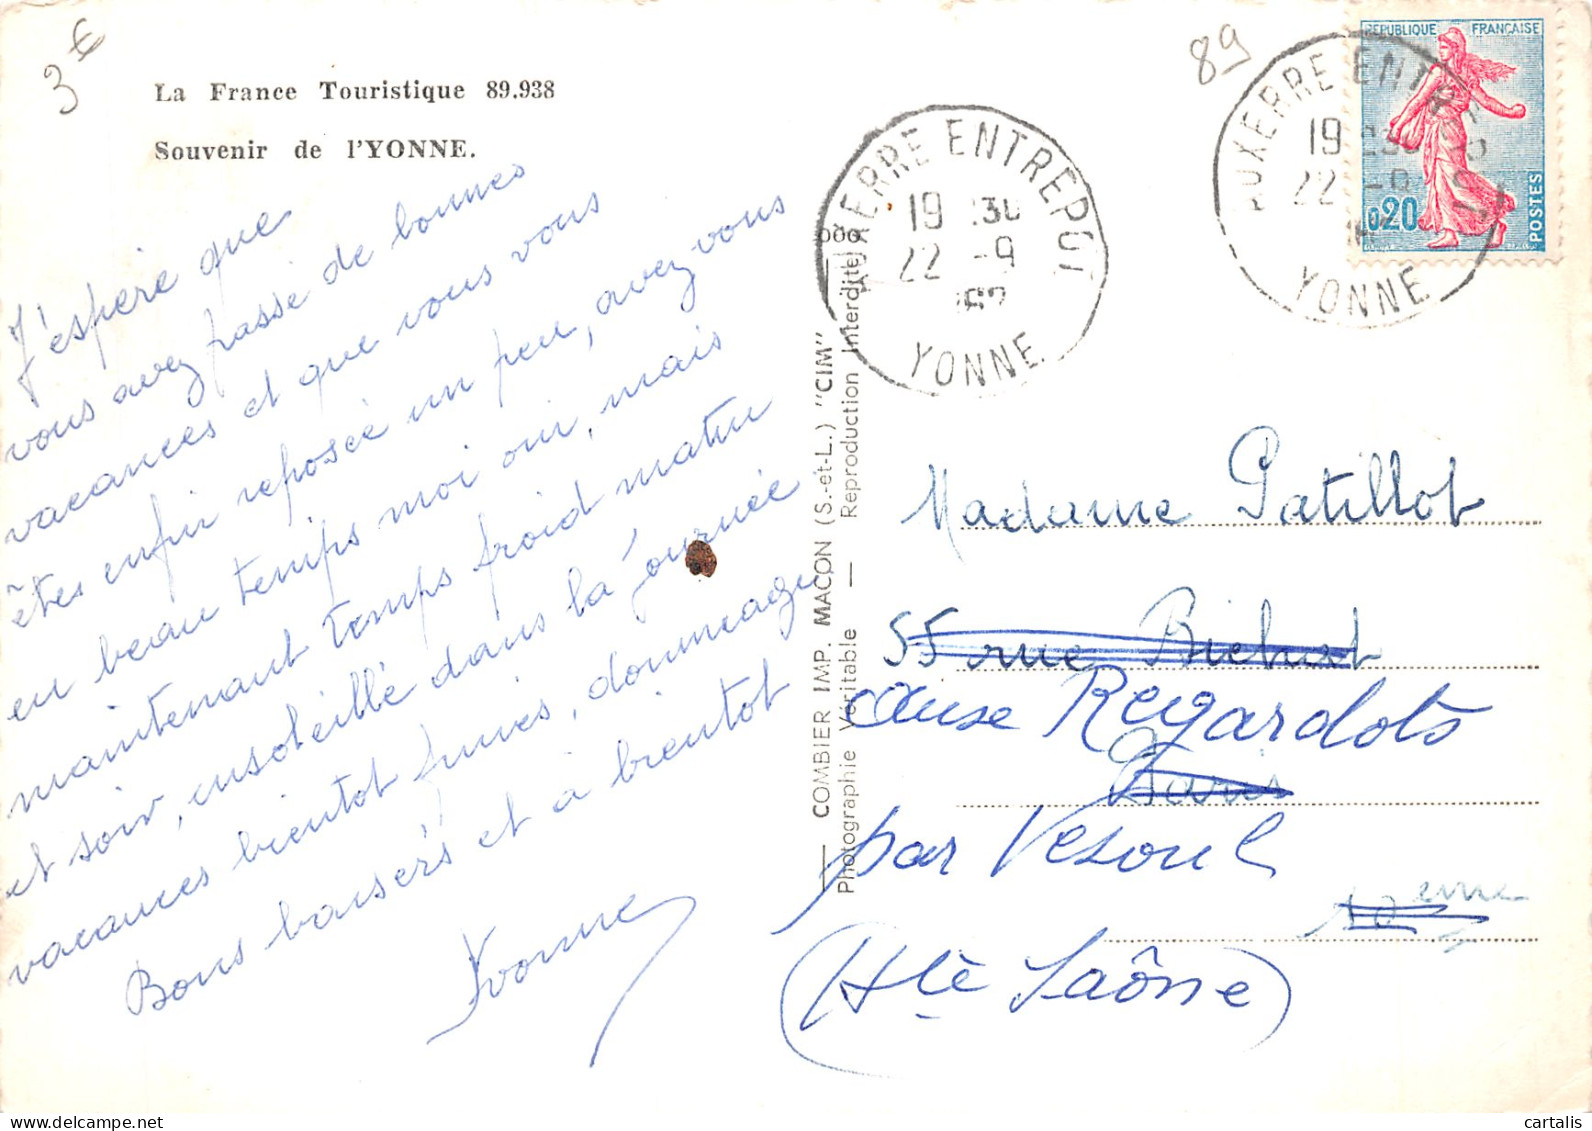 3€
89
La France Touristique 89.938
Souvenir de l'YONNE.
J'espère que
vous avez passé de bonnes
vacances et que vous vous
êtes enfin reposée un peu, avez vous
eu beau temps moi oui, mais
maintenant temps froid matin
et soir, ensoleillé dans la journée
vacances bientôt finies, dommage
Bons baisers et à bientot
Yvonne
COMBIER IMP. MACON (S.-et-L.) "CIM"
Photographie Véritable — Reproduction Interdite
AUXERRE ENTREPOT
19 30
22 -9
YONNE
REPUBLIQUE FRANÇAISE
0,20
POSTES
AUXERRE ENTREPOT
19 30
22 -9
YONNE
Madame Patillot
55 rue Bichat
Regardots
Paris
par Vesoul
10eme
(Hte Saône)
cartalis
www.delcampe.net